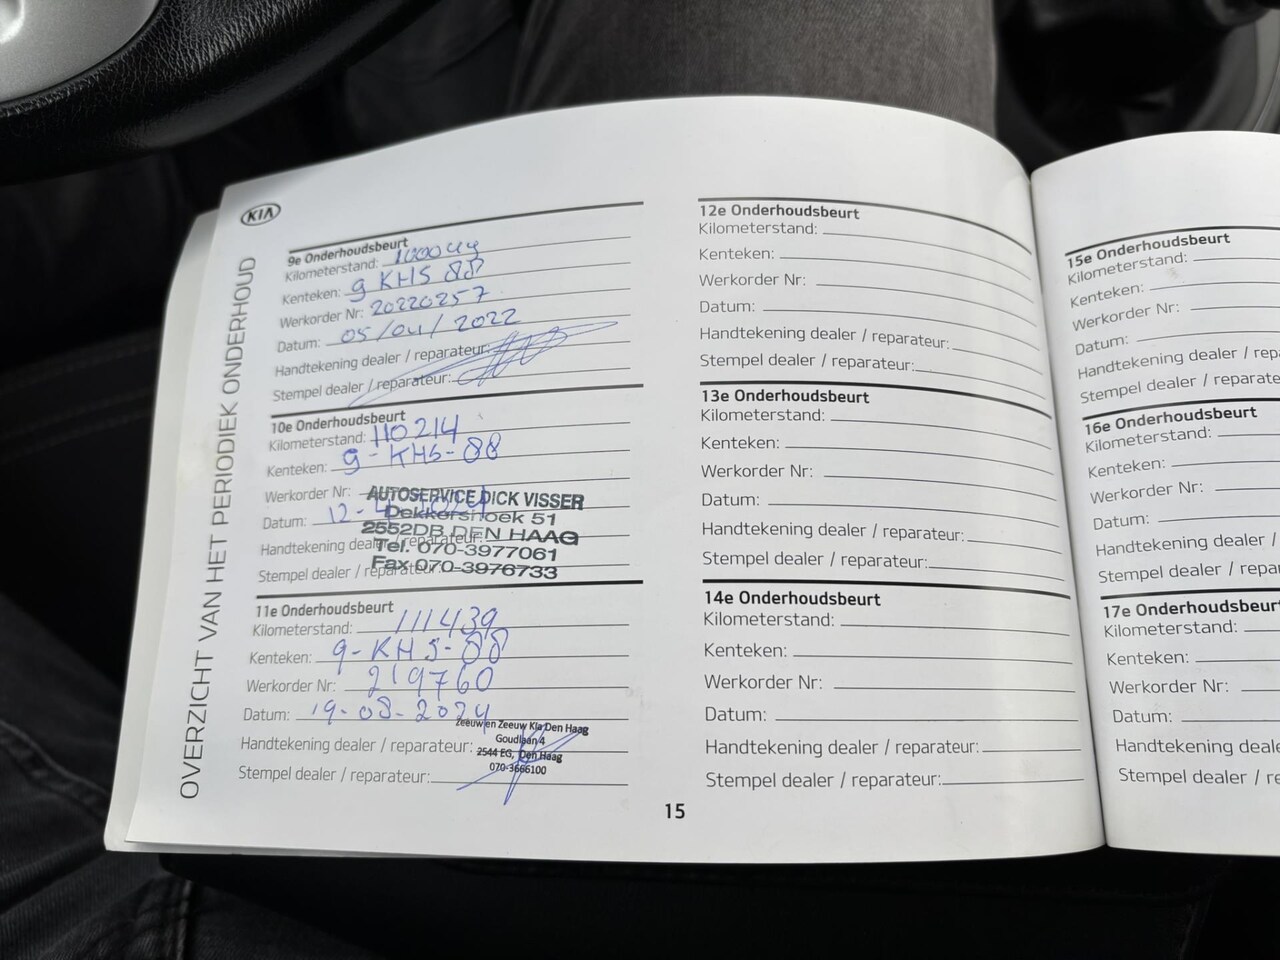 KIA
OVERZICHT VAN HET PERIODIEK ONDERHOUD
9e Onderhoudsbeurt
Kilometerstand: 100044
Kenteken: 9 KHS 88
Werkorder Nr: 20220257
Datum: 05/04/2022
Handtekening dealer / reparateur:
Stempel dealer / reparateur:
10e Onderhoudsbeurt
Kilometerstand: 110214
Kenteken: 9-KHS-88
Werkorder Nr:
AUTOSERVICE DICK VISSER
Datum: 12-4
Dekkershoek 51
2552DB DEN HAAG
Handtekening dealer / reparateur:
Tel. 070-3977061
Stempel dealer / reparateur:
Fax 070-3976733
11e Onderhoudsbeurt
Kilometerstand: 111439
Kenteken: 9-KHS-88
Werkorder Nr: 219760
Datum: 19-08-2024
Zeeuw en Zeeuw Kia Den Haag
Goudlaan 4
Handtekening dealer / reparateur:
2544 EG, Den Haag
070-3666100
Stempel dealer / reparateur:
12e Onderhoudsbeurt
Kilometerstand:
Kenteken:
Werkorder Nr:
Datum:
Handtekening dealer / reparateur:
Stempel dealer / reparateur:
13e Onderhoudsbeurt
Kilometerstand:
Kenteken:
Werkorder Nr:
Datum:
Handtekening dealer / reparateur:
Stempel dealer / reparateur:
14e Onderhoudsbeurt
Kilometerstand:
Kenteken:
Werkorder Nr:
Datum:
Handtekening dealer / reparateur:
Stempel dealer / reparateur:
15
15e Onderhoudsbeurt
Kilometerstand:
Kenteken:
Werkorder Nr:
Datum:
Handtekening dealer / rep
Stempel dealer / repara
16e Onderhoudsbeurt
Kilometerstand:
Kenteken:
Werkorder Nr:
Datum:
Handtekening dealer /
Stempel dealer / repa
17e Onderhoudsbeurt
Kilometerstand:
Kenteken:
Werkorder Nr:
Datum:
Handtekening deale
Stempel dealer / re